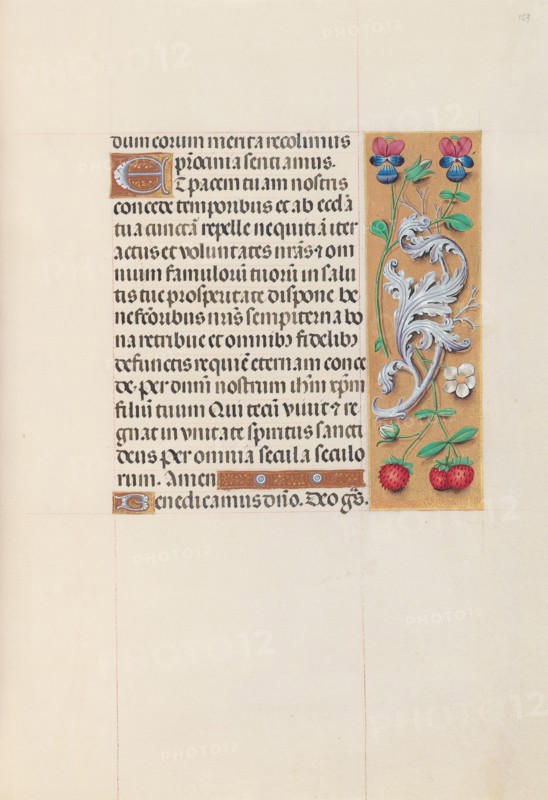 153
dum eorum merita recolimus
p̄rocinia sentiamus.
Et pacem tuam nostris
concede temporibus et ab eccl̄a
tua cunctā repelle nequitiā iter
actus et voluntates nrās ⁊ om
nium famulorū tuorū in salu
tis tue prosperitate dispone be
nefc̄oribus nr̄is sempiterna bo
na retribue et omnibꝫ fidelibꝫ
defunctis requiē eternam conce
de. Per dnm̄ nostrum ihm̄ xpm̄
filiū tuum Qui tecū viuit ⁊ re
gnat in vnitate spiritus sancti
deus Per omnia secula seculo
rum. Amen
Benedicamus dn̄o. Deo gr̄s.